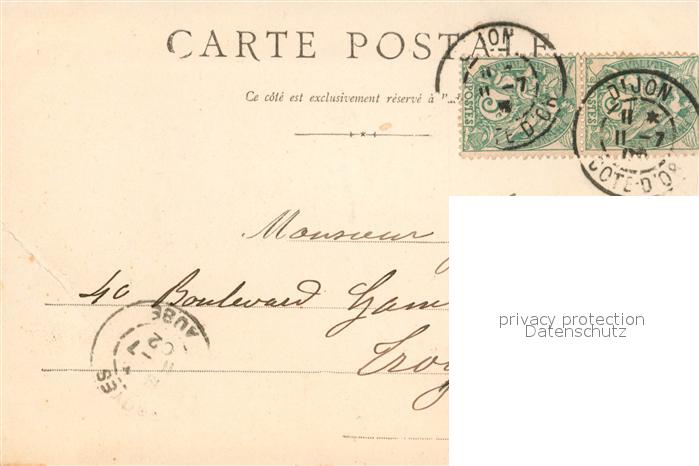 CARTE POSTALE
Ce côté est exclusivement réservé à
POSTES
DIJON
11
11-7
COTE-D'OR
Monsieur
40 Boulevard Gam
Troy
AUBE
11-7
02
privacy protection
Datenschutz